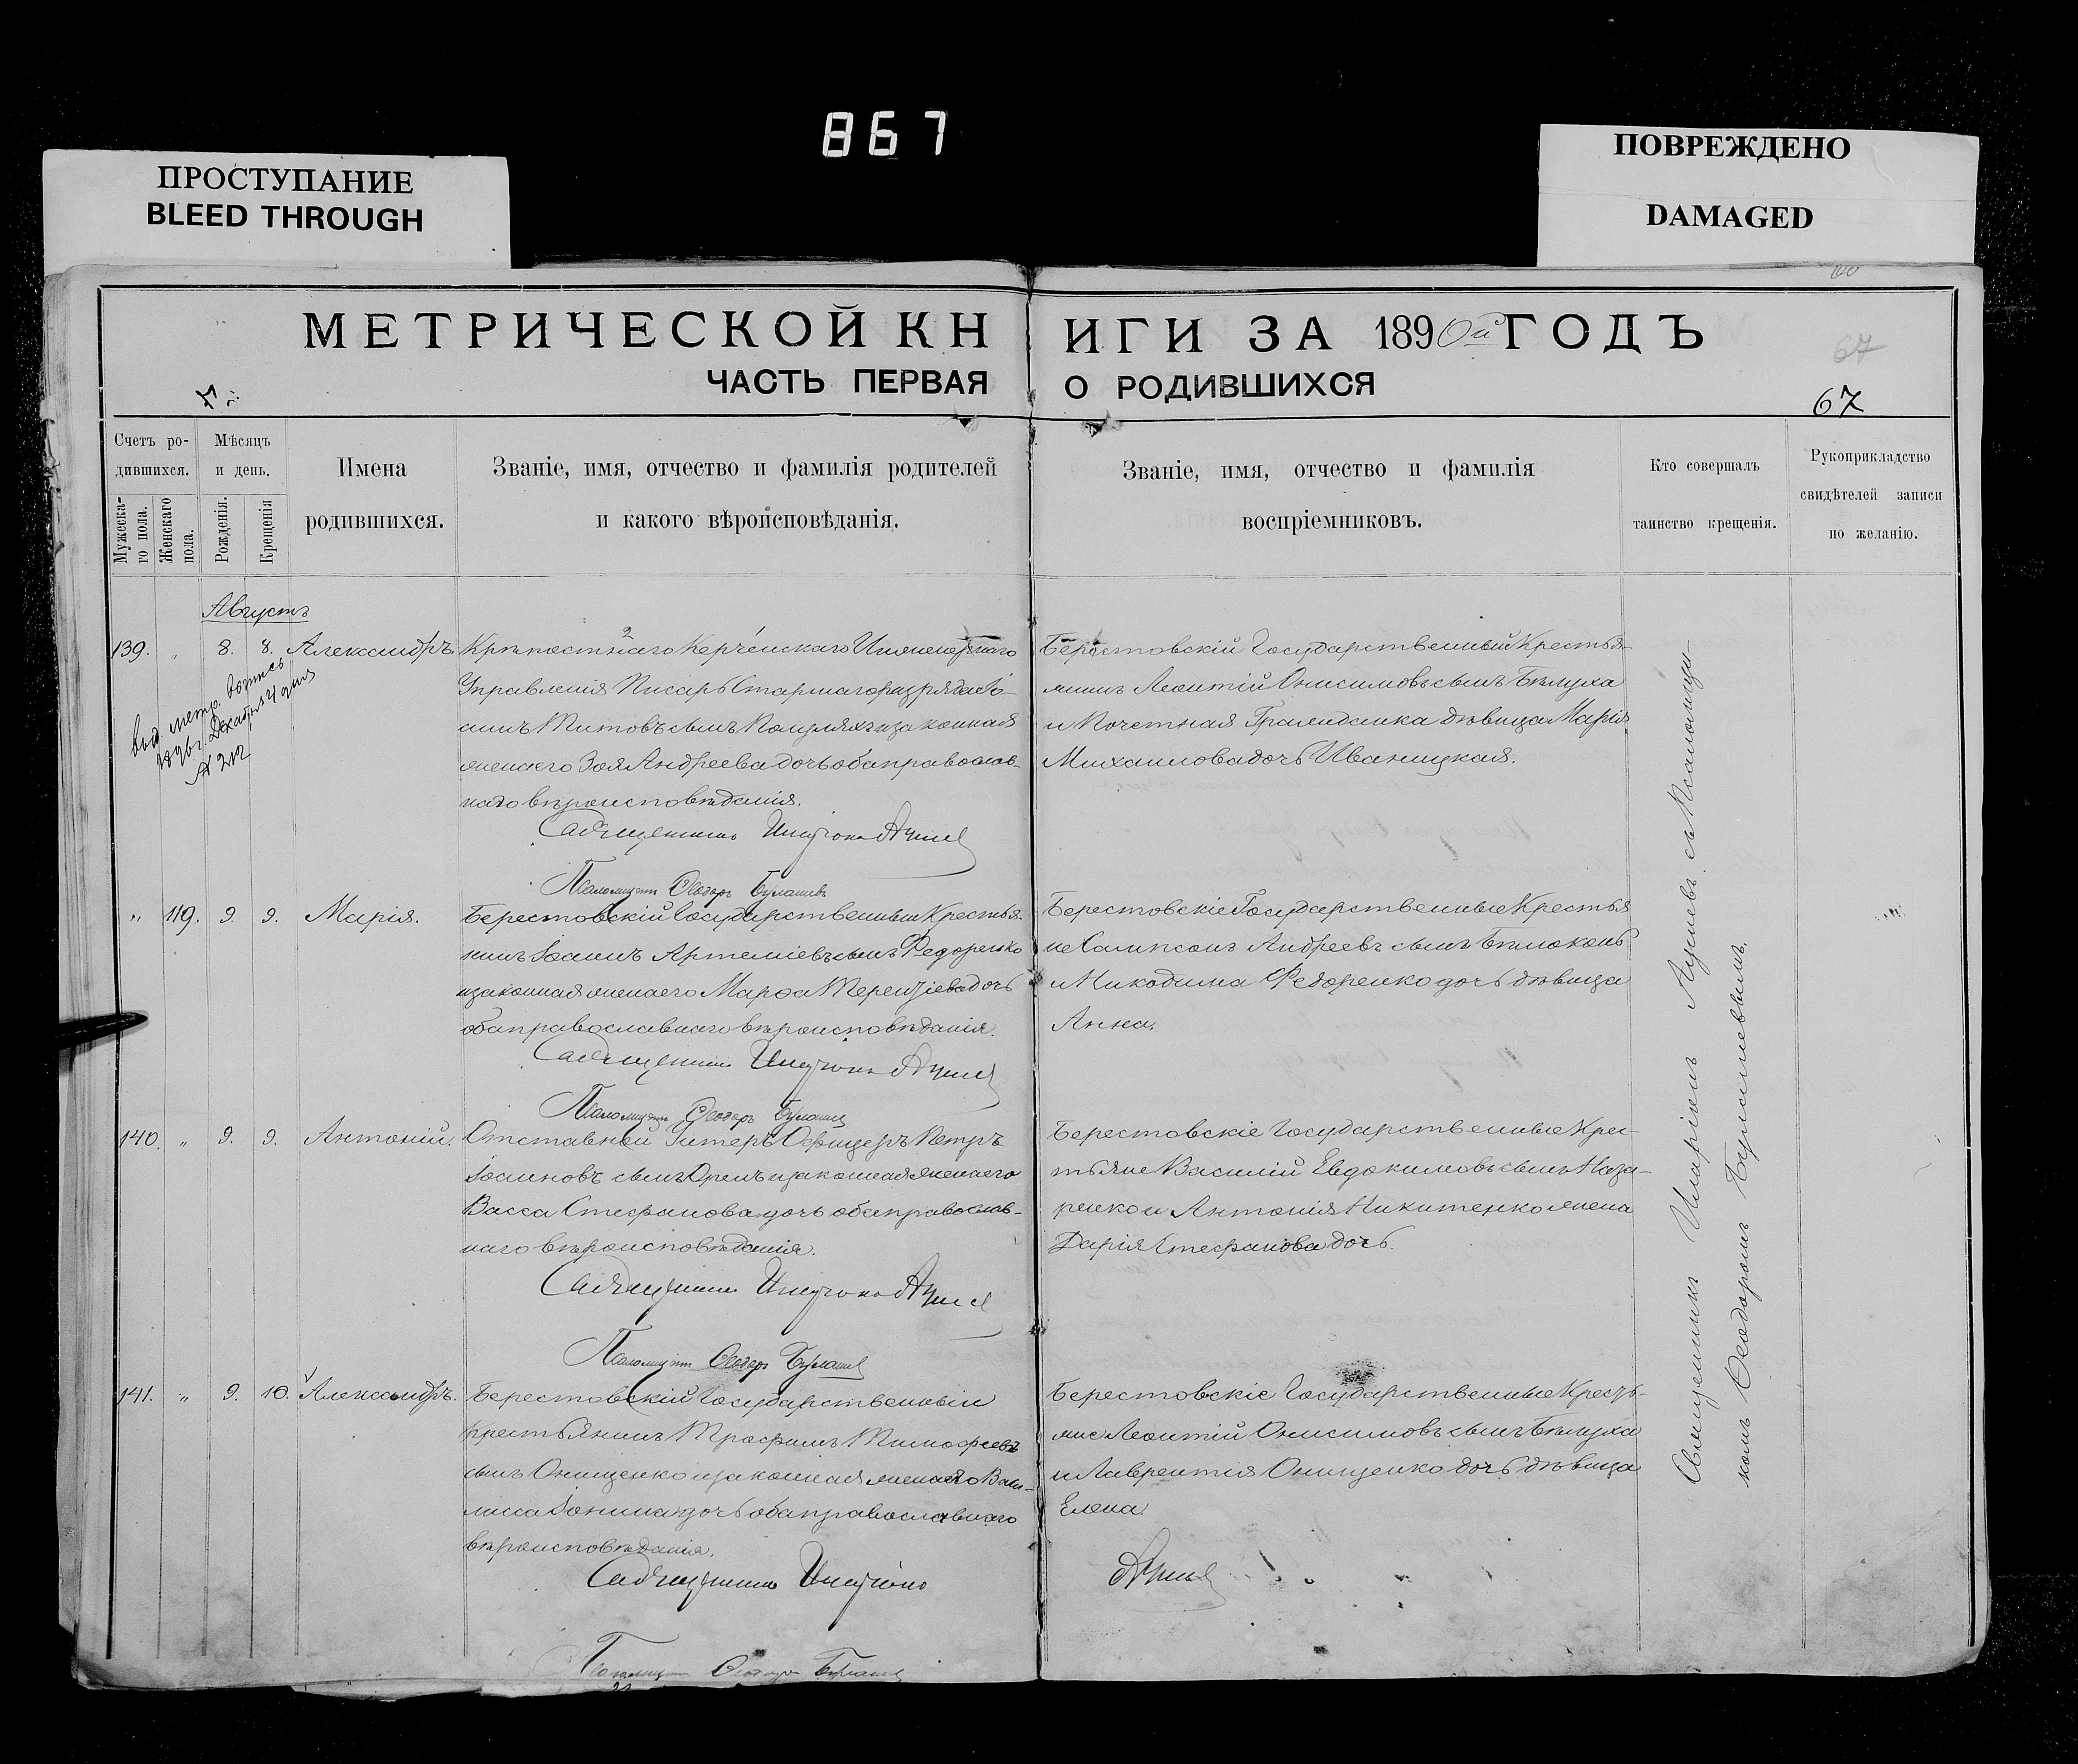 867
ПРОСТУПАНИЕ
BLEED THROUGH
ПОВРЕЖДЕНО
DAMAGED
МЕТРИЧЕСКОЙ КНИГИ ЗА 1890й ГОДЪ
ЧАСТЬ ПЕРВАЯ О РОДИВШИХСЯ
67
67
Счетъ ро-
дившихся.
Мужеска-
го пола.
Женскаго
пола.
Мѣсяцъ
и день.
Рожденія.
Крещенія
Имена
родившихся.
Званіе, имя, отчество и фамилія родителей
и какого вѣроисповѣданія.
Званіе, имя, отчество и фамилія
воспріемниковъ.
Кто совершалъ
таинство крещенія.
Рукоприкладство
свидѣтелей записи
по желанію.
Августъ
139. " 8. 8. Александръ
№ 212
Крѣпостнаго Керченскаго Инженернаго
Управленія Писарь Старшаго разряда Іо-
аннъ Титовъ сынъ и законная
жена его Зоя Андреева дочь оба православ-
наго вѣроисповѣданія.
Священникъ Иларіонъ
Псаломщикъ Ѳеодоръ
Берестовскій Государственный Крестья-
нинъ Леонтій Онисимовъ сынъ Бѣлуха
и Почетная Гражданка дѣвица Марія
Михаилова дочь Иваницкая.
" 119. 9. 9. Марія.
Берестовскій Государственный Крестья-
нинъ Іоаннъ Артеміевъ сынъ Федоренко
и законная жена его Марѳа Терентіева дочь
оба православнаго вѣроисповѣданія.
Священникъ Иларіонъ
Псаломщикъ Ѳеодоръ
Берестовскіе Государственные Крестья
не Сампсонъ Андреевъ сынъ Бѣлоконь
и Никодима Федоренко дочь дѣвица
Анна.
140. " 9. 9. Антоній.
Отставной Унтеръ Офицеръ Петръ
Іоанновъ сынъ и законная жена его
Васса Стефанова дочь оба православ-
наго вѣроисповѣданія.
Священникъ Иларіонъ
Псаломщикъ Ѳеодоръ
Берестовскіе Государственные Крес-
тьяне Василій Евдокимовъ сынъ Наза-
ренко и Антонія Никитенко жена
Дарія Стефанова дочь.
141. " 9. 10. Александръ.
Берестовскій Государственный
Крестьянинъ Трофимъ Тимофеевъ
сынъ Онищенко и законная жена его Васи-
лисса Іонина дочь оба православнаго
вѣроисповѣданія.
Священникъ Иларіонъ
Псаломщикъ Ѳеодоръ
Берестовскіе Государственные Кресть-
яне Леонтій Онисимовъ сынъ Бѣлуха
и Лаврентія Онищенко дочь дѣвица
Елена.
Священникъ Иларіонъ съ Псаломщи-
комъ Ѳеодоромъ